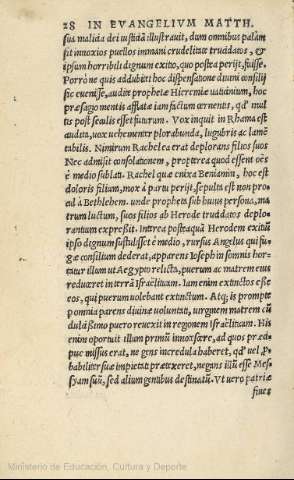 28 IN EVANGELIVM MATTH.
sua malicia dei iusticiā illustrauit, dum omnibus palam
sit innoxios puellos immani crudelitate trucidatos, &
ipsum horribili dignum exito, quo postea perijt, fuisse.
Porrò ne quis addubitet hoc dispensatione diuini consilij
sic euenisse, audite prophetæ Hieremiæ uaticinium, hoc
præsagio mentis afflatæ iam factum cernentis, qd' mul
tis post seculis esset futurum. Vox inquit in Rhama est
audita, uox uehementer plorabunda, lugubris ac lamē
tabilis. Nimirum Rachel ea erat deplorans filios suos
Nec admisit consolationem, propterea quod essent oēs
è medio sublati. Rachel quæ enixa Beniamin, hoc est
doloris filium, mox à partu perijt, sepulta est non pro
cul à Bethlehem. unde propheta sub huius persona, ma
trum luctum, suos filios ab Herode trucidatos deplo-
rantium expreßit. Interea posteaquā Herodem exitū
ipso dignum sustulisset è medio, rursus Angelus qui fu-
gæ consilium dederat, apparens Ioseph in somnis hor-
tatur illum ut Aegypto relicta, puerum ac matrem eius
reduxeret in terrā Israëliticam. Iam enim extinctos esse
eos, qui puerum uolebant extinctum. Atq; is prompte
per omnia parens diuinæ uoluntati, uirginem matrem cū
dulcißimo puero reuexit in regionem Israëliticam. His
enim oportuit illum primū innotescere, ad quos præci
pue missus erat, ne gens incredula haberet, qd' uel pro
babiliter suæ impietati prætexeret, negans illū esse Mes-
syam suū, sed alium gentibus destinatū. Vt uero patriæ
fines
Ministerio de Educación, Cultura y Deporte